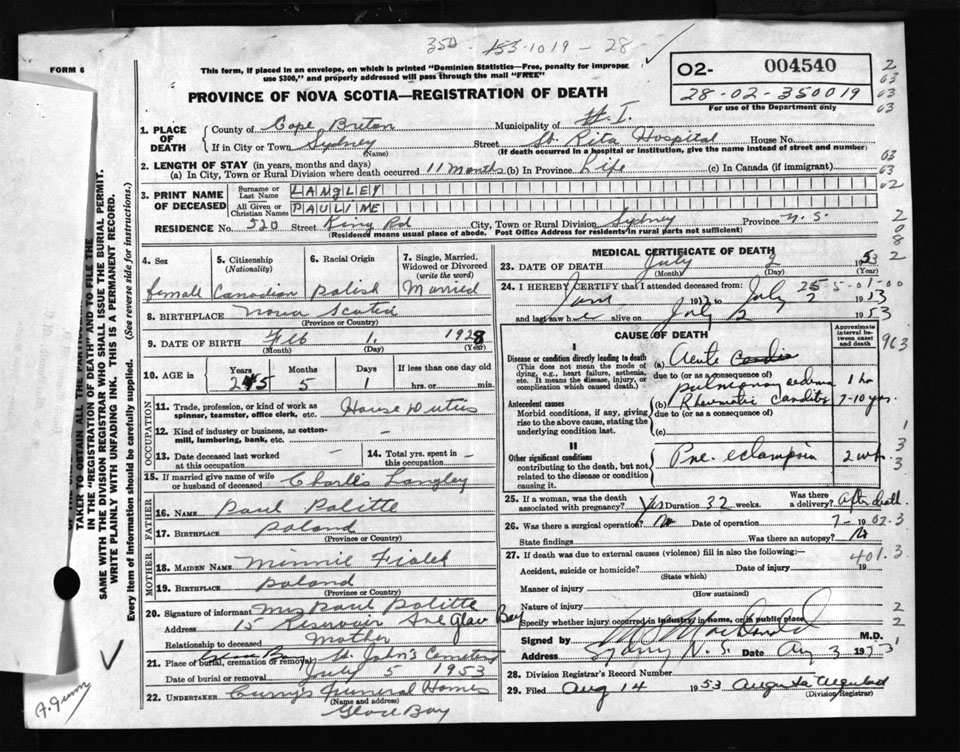 350 - 153-1019 - 28
FORM 6
This form, if placed in an envelope, on which is printed "Dominion Statistics—Free, penalty for improper
use $300," and properly addressed will pass through the mail "FREE"
PROVINCE OF NOVA SCOTIA—REGISTRATION OF DEATH
O2- 004540
28-02-350019
For use of the Department only
1. PLACE OF DEATH { County of Cape Breton Municipality of
If in City or Town Sydney (Name) Street St. Rita Hospital House No.
(If death occurred in a hospital or institution, give the name instead of street and number)
2. LENGTH OF STAY (in years, months and days)
(a) In City, Town or Rural Division where death occurred 11 Months (b) In Province Life (c) In Canada (if immigrant)
3. PRINT NAME OF DECEASED { Surname or Last Name LANGLEY
All Given or Christian Names PAULINE
RESIDENCE No. 520 Street King Rd City, Town or Rural Division Sydney Province N.S.
(Residence means usual place of abode. Post Office Address for residents in rural parts not sufficient)
4. Sex female
5. Citizenship (Nationality) Canadian
6. Racial Origin Polish
7. Single, Married, Widowed or Divorced (write the word) Married
8. BIRTHPLACE Nova Scotia
(Province or Country)
9. DATE OF BIRTH Feb 1, 1928
(Month) (Day) (Year)
10. AGE in Years 25 Months 5 Days 1 If less than one day old
hrs. or min.
OCCUPATION
11. Trade, profession, or kind of work as spinner, teamster, office clerk, etc. House Duties
12. Kind of industry or business, as cotton-mill, lumbering, bank, etc. -
13. Date deceased last worked at this occupation -
14. Total yrs. spent in this occupation -
15. If married give name of wife or husband of deceased Charles Langley
FATHER
16. NAME Paul Politte
17. BIRTHPLACE Poland
(Province or Country)
MOTHER
18. MAIDEN NAME Minnie
19. BIRTHPLACE Poland
(Province or Country)
20. Signature of informant Mrs Paul Politte
Address 15 Reservoir Ave Glace Bay
Relationship to deceased Mother
21. Place of burial, cremation or removal Glace Bay St. John's Cemetery
Date of burial or removal July 5 1953
22. UNDERTAKER Curry's Funeral Homes
(Name and address)
Glace Bay
MEDICAL CERTIFICATE OF DEATH
23. DATE OF DEATH July 2 1953
(Month) (Day) (Year)
24. I HEREBY CERTIFY that I attended deceased from:
June 19 to July 2 1953
and last saw h e alive on July 2 1953
25-5-01-00
CAUSE OF DEATH
Approximate interval between onset and death
963
I
Disease or condition directly leading to death
(This does not mean the mode of dying, e.g., heart failure, asthenia, etc. It means the disease, injury, or complication which caused death.)
(a) Acute cardiac
due to (or as a consequence of)
pulmonary edema 1 hr
Antecedent causes
Morbid conditions, if any, giving rise to above cause, stating the underlying condition last.
(b) Rheumatic Carditis 7-10 yrs.
due to (or as a consequence of)
(c)
II
Other significant conditions
contributing to the death, but not related to the disease or condition causing it.
Pre-eclampsia 2 wks
25. If a woman, was the death associated with pregnancy? Yes Duration 32 weeks. Was there a delivery? After death.
26. Was there a surgical operation? No Date of operation 19
State findings Was there an autopsy? No
27. If death was due to external causes (violence) fill in also the following:—
Accident, suicide or homicide? Date of injury 19
(State which)
401.3
Manner of injury
(How sustained)
Nature of injury
Specify whether injury occurred in industry, in home, or in public place
Signed by MacDonald M.D.
Address Sydney N.S. Date Aug 3 1953
28. Division Registrar's Record Number
29. Filed Aug 14 1953 Augusta
(Division) Registrar
TAKER TO OBTAIN ALL THE PARTICULARS
IN THE "REGISTRATION OF DEATH" AND TO FILE THE
SAME WITH THE DIVISION REGISTRAR WHO SHALL ISSUE THE BURIAL PERMIT.
WRITE PLAINLY WITH UNFADING INK. THIS IS A PERMANENT RECORD.
Every item of information should be carefully supplied. (See reverse side for instructions.)